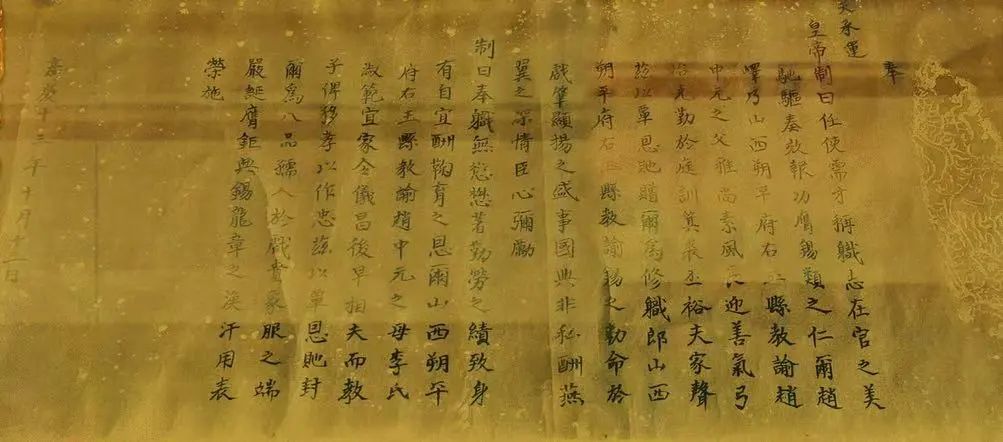 奉
天承運
皇帝制曰任使需才稱職志在官之美
馳驅奏效報功膺錫類之仁爾趙
嶧乃山西朔平府右玉縣教諭趙
中元之父雅尚素風長迎善氣弓
冶克勤於庭訓箕裘丕裕夫家聲
茲以覃恩貤贈爾為修職郎山西
朔平府右玉縣教諭錫之勅命於
戲肇顯揚之盛事國典非私酬燕
翼之深情臣心彌勵
制曰奉職無愆懋著勤勞之績致身
有自宜酬鞠育之恩爾山西朔平
府右玉縣教諭趙中元之母李氏
淑範宜家令儀昌後早相夫而教
子俾移孝以作忠茲以覃恩貤封
爾為八品孺人於戲賁象服之端
嚴誕膺鉅典錫龍章之渙汗用表
榮施
嘉慶十三年十月十二日